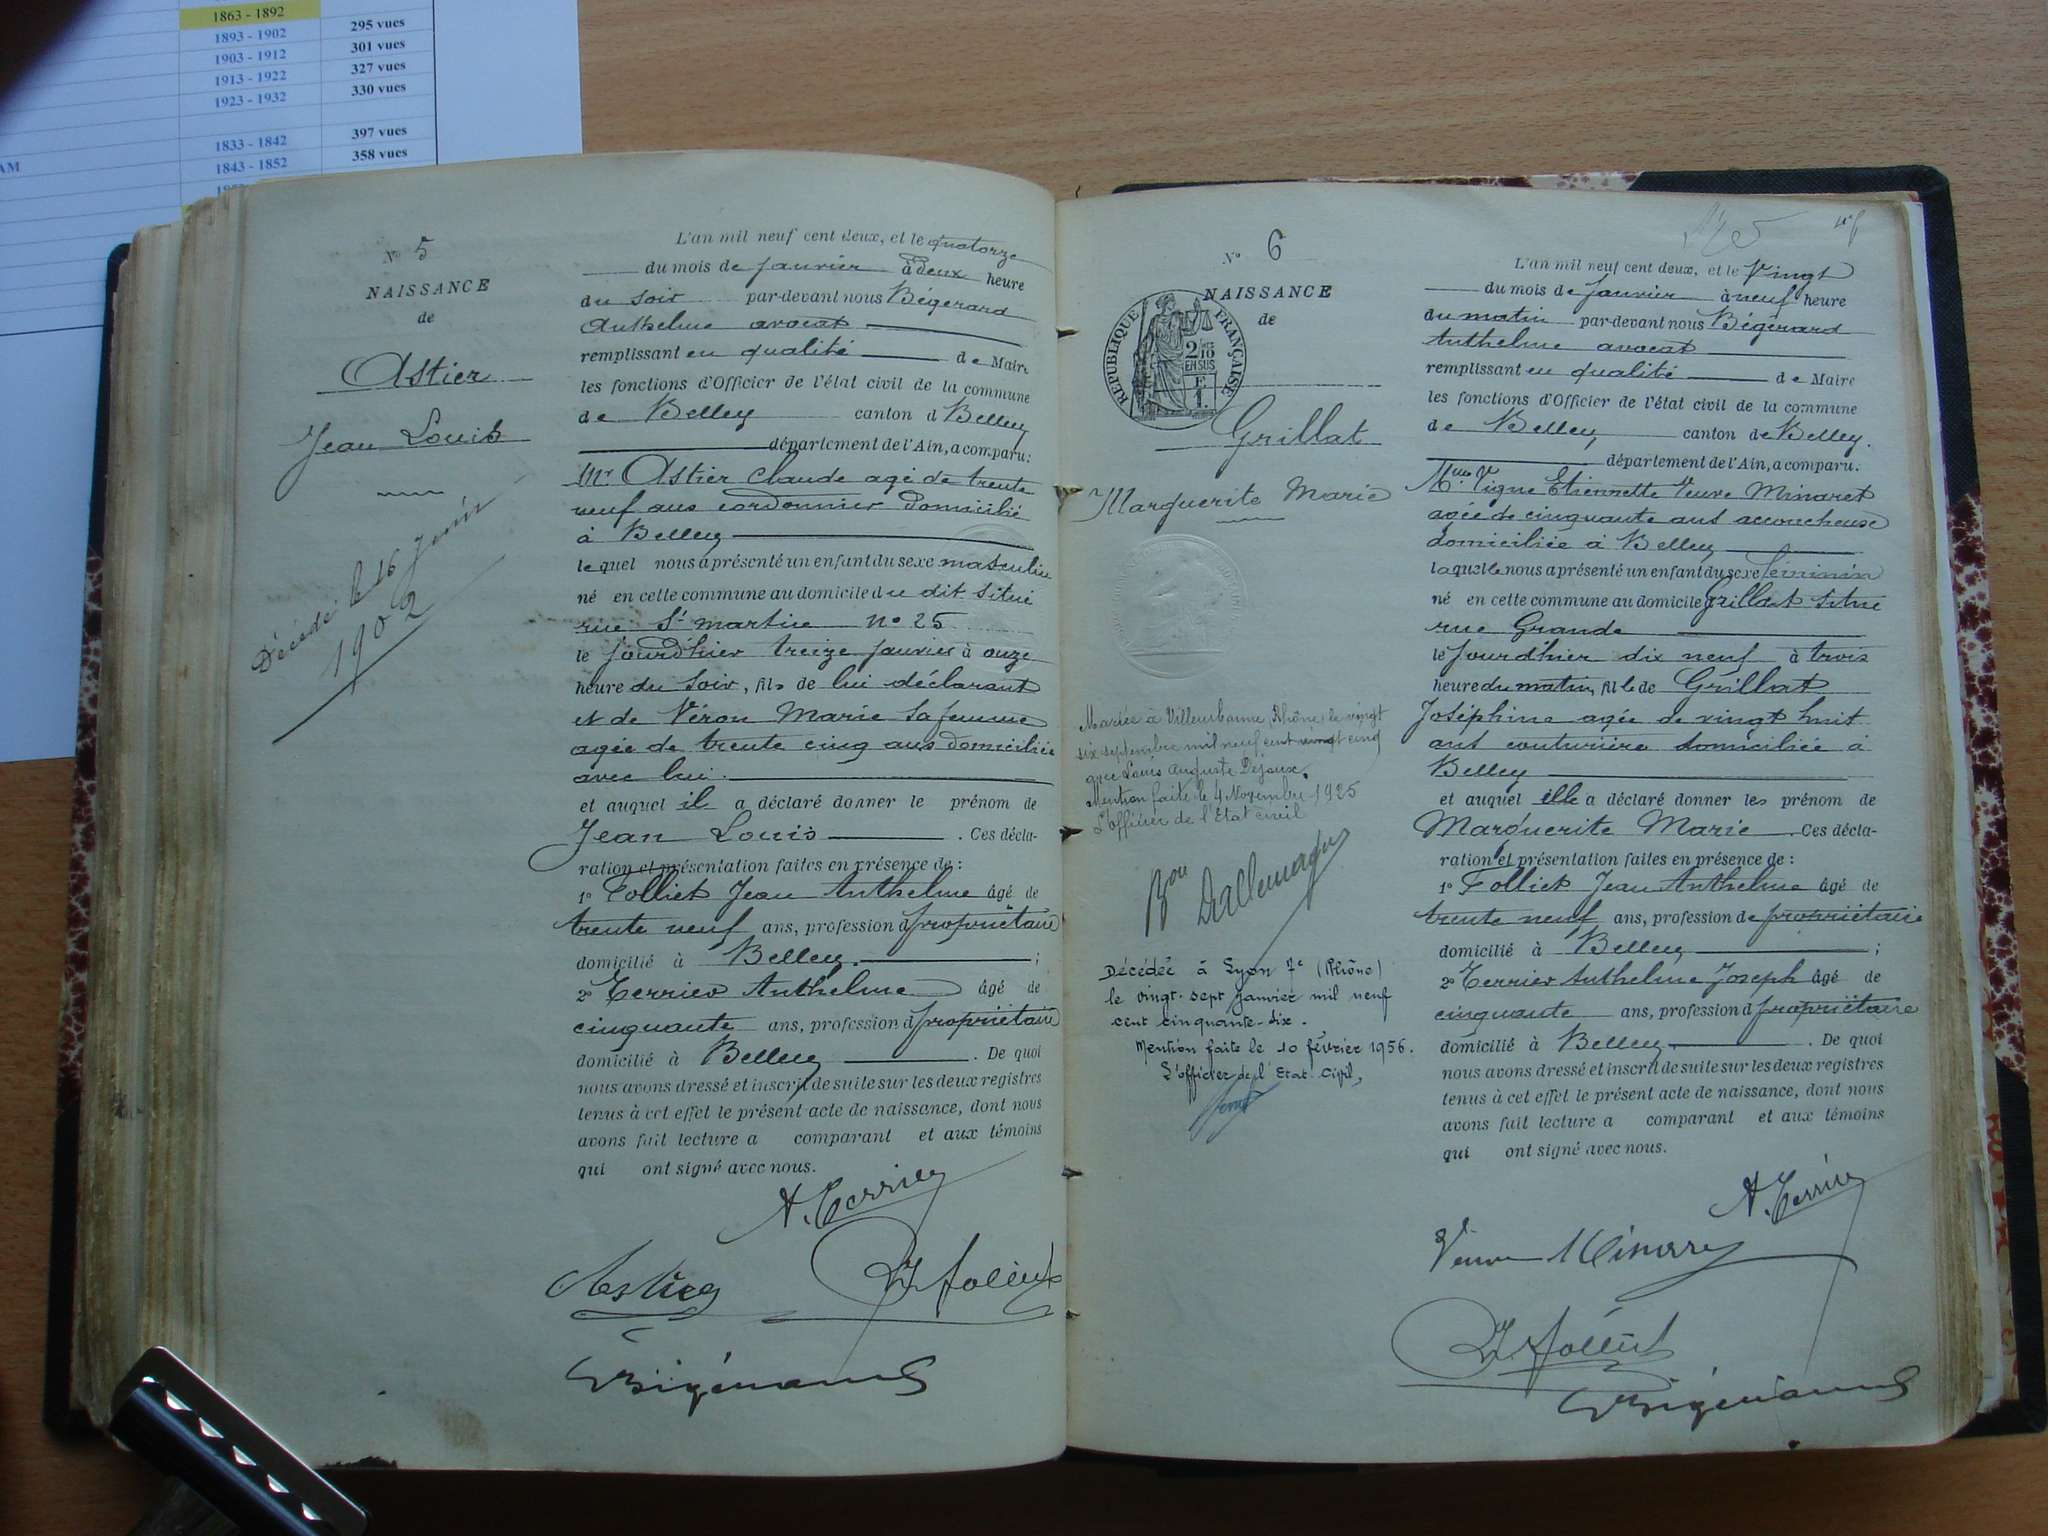 1863 - 1892
1893 - 1902 295 vues
1903 - 1912 301 vues
1913 - 1922 327 vues
1923 - 1932 330 vues
1833 - 1842 397 vues
AM 1843 - 1852 358 vues
N° 5
NAISSANCE
de
Astier
Jean Louis
Décédé le 16 Juin
1902
L'an mil neuf cent deux, et le quatorze
du mois de Janvier à deux heure
du soir par-devant nous Bégerard
Anthelme avocat
remplissant en qualité de Maire
les fonctions d'Officier de l'état civil de la commune
de Belley canton d Belley
département de l'Ain, a comparu:
Mr Astier Claude agé de trente
neuf ans cordonnier domicilié
à Belley
lequel nous a présenté un enfant du sexe masculin
né en cette commune au domicile du dit situé
rue St martin no 25
le jourdhier treize janvier à onze
heure du soir, fils de lui déclarant
et de Véron Marie sa femme
agée de trente cinq ans domiciliée
avec lui.
et auquel il a déclaré donner le prénom de
Jean Louis . Ces décla-
ration et présentation faites en présence de :
1° Folliet Jean Anthelme âgé de
trente neuf ans, profession d propriétaire
domicilié à Belley. ;
2° Terrier Anthelme âgé de
cinquante ans, profession d propriétaire
domicilié à Belley . De quoi
nous avons dressé et inscrit de suite sur les deux registres
tenus à cet effet le présent acte de naissance, dont nous
avons fait lecture a comparant et aux témoins
qui ont signé avec nous.
A. Terrier
Astier Folliet
Bégerard
N° 6
NAISSANCE
de
RÉPUBLIQUE FRANÇAISE
2/10
EN SUS
Grillat
Marguerite Marie
Mariée à Villeurbanne (Rhône) le vingt
six septembre mil neuf cent vingt cinq
avec Louis Auguste Dejoux.
Mention faite le 4 Novembre 1925
L'officier de l'Etat civil
Bon Dallemagne
Décédée à Lyon 7e (Rhône)
le vingt-sept janvier mil neuf
cent cinquante-six.
Mention faite le 10 février 1956.
L'officier de l'Etat Civil,
L'an mil neuf cent deux, et le Vingt
du mois de Janvier à neuf heure
du matin par-devant nous Bégerard
Anthelme avocat
remplissant en qualité de Maire
les fonctions d'Officier de l'état civil de la commune
de Belley canton de Belley.
département de l'Ain, a comparu.
Mme Vigne Etiennette Veuve Minaret
agée de cinquante ans accoucheuse
domiciliée à Belley
laquelle nous a présenté un enfant du sexe féminin
né en cette commune au domicile Grillat situé
rue Grande
le jourdhier dix neuf à trois
heure du matin, fille de Grillat
Joséphine agée de vingt huit
ans couturière domiciliée à
Belley
et auquel elle a déclaré donner les prénom de
Marguerite Marie . Ces décla-
ration et présentation faites en présence de :
1° Folliet Jean Anthelme âgé de
trente neuf ans, profession de propriétaire
domicilié à Belley ;
2° Terrier Anthelme Joseph âgé de
cinquante ans, profession d propriétaire
domicilié à Belley . De quoi
nous avons dressé et inscrit de suite sur les deux registres
tenus à cet effet le présent acte de naissance, dont nous
avons fait lecture a comparant et aux témoins
qui ont signé avec nous.
A. Terrier
Veuve Minaret
Folliet
Bégerard